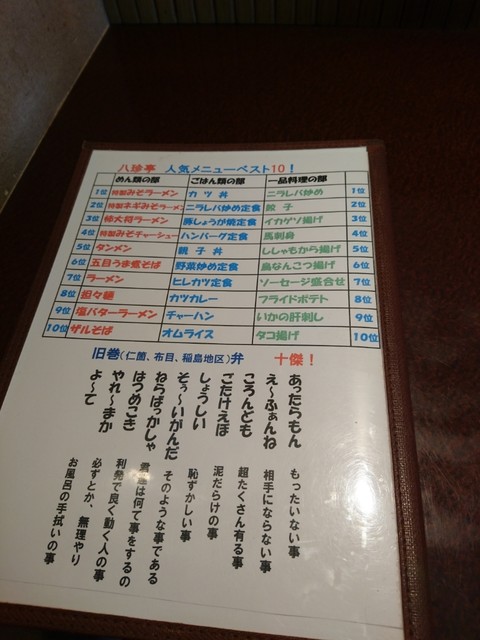 八珍亭 人気メニューベスト10！
めん類の部 ごはん類の部 一品料理の部
1位 特製みそラーメン カツ丼 ニラレバ炒め 1位
2位 特製ネギみそラーメン ニラレバ炒め定食 餃子 2位
3位 柿大将ラーメン 豚しょうが焼定食 イカゲソ揚げ 3位
4位 特製みそチャーシュー ハンバーグ定食 馬刺身 4位
5位 タンメン 親子丼 ししゃもから揚げ 5位
6位 五目うま煮そば 野菜炒め定食 鳥なんこつ揚げ 6位
7位 ラーメン ヒレカツ定食 ソーセージ盛合せ 7位
8位 担々麺 カツカレー フライドポテト 8位
9位 塩バターラーメン チャーハン いかの肝刺し 9位
10位 ザルそば オムライス タコ揚げ 10位
旧巻(仁箇、布目、稲島地区)弁 十傑！
あったらもん もったいない事
え～ふぁんね 相手にならない事
ころんども 超たくさん有る事
ごたけえほ 泥だらけの事
しょうしい 恥ずかしい事
そぅ～いがんだ そのような事である
ねらばっかしゃ は何て事をするの
はつめこき 利発で良く動く人の事
やれ～まか 必ずとか、無理やり
よ～て お風呂の手拭いの事